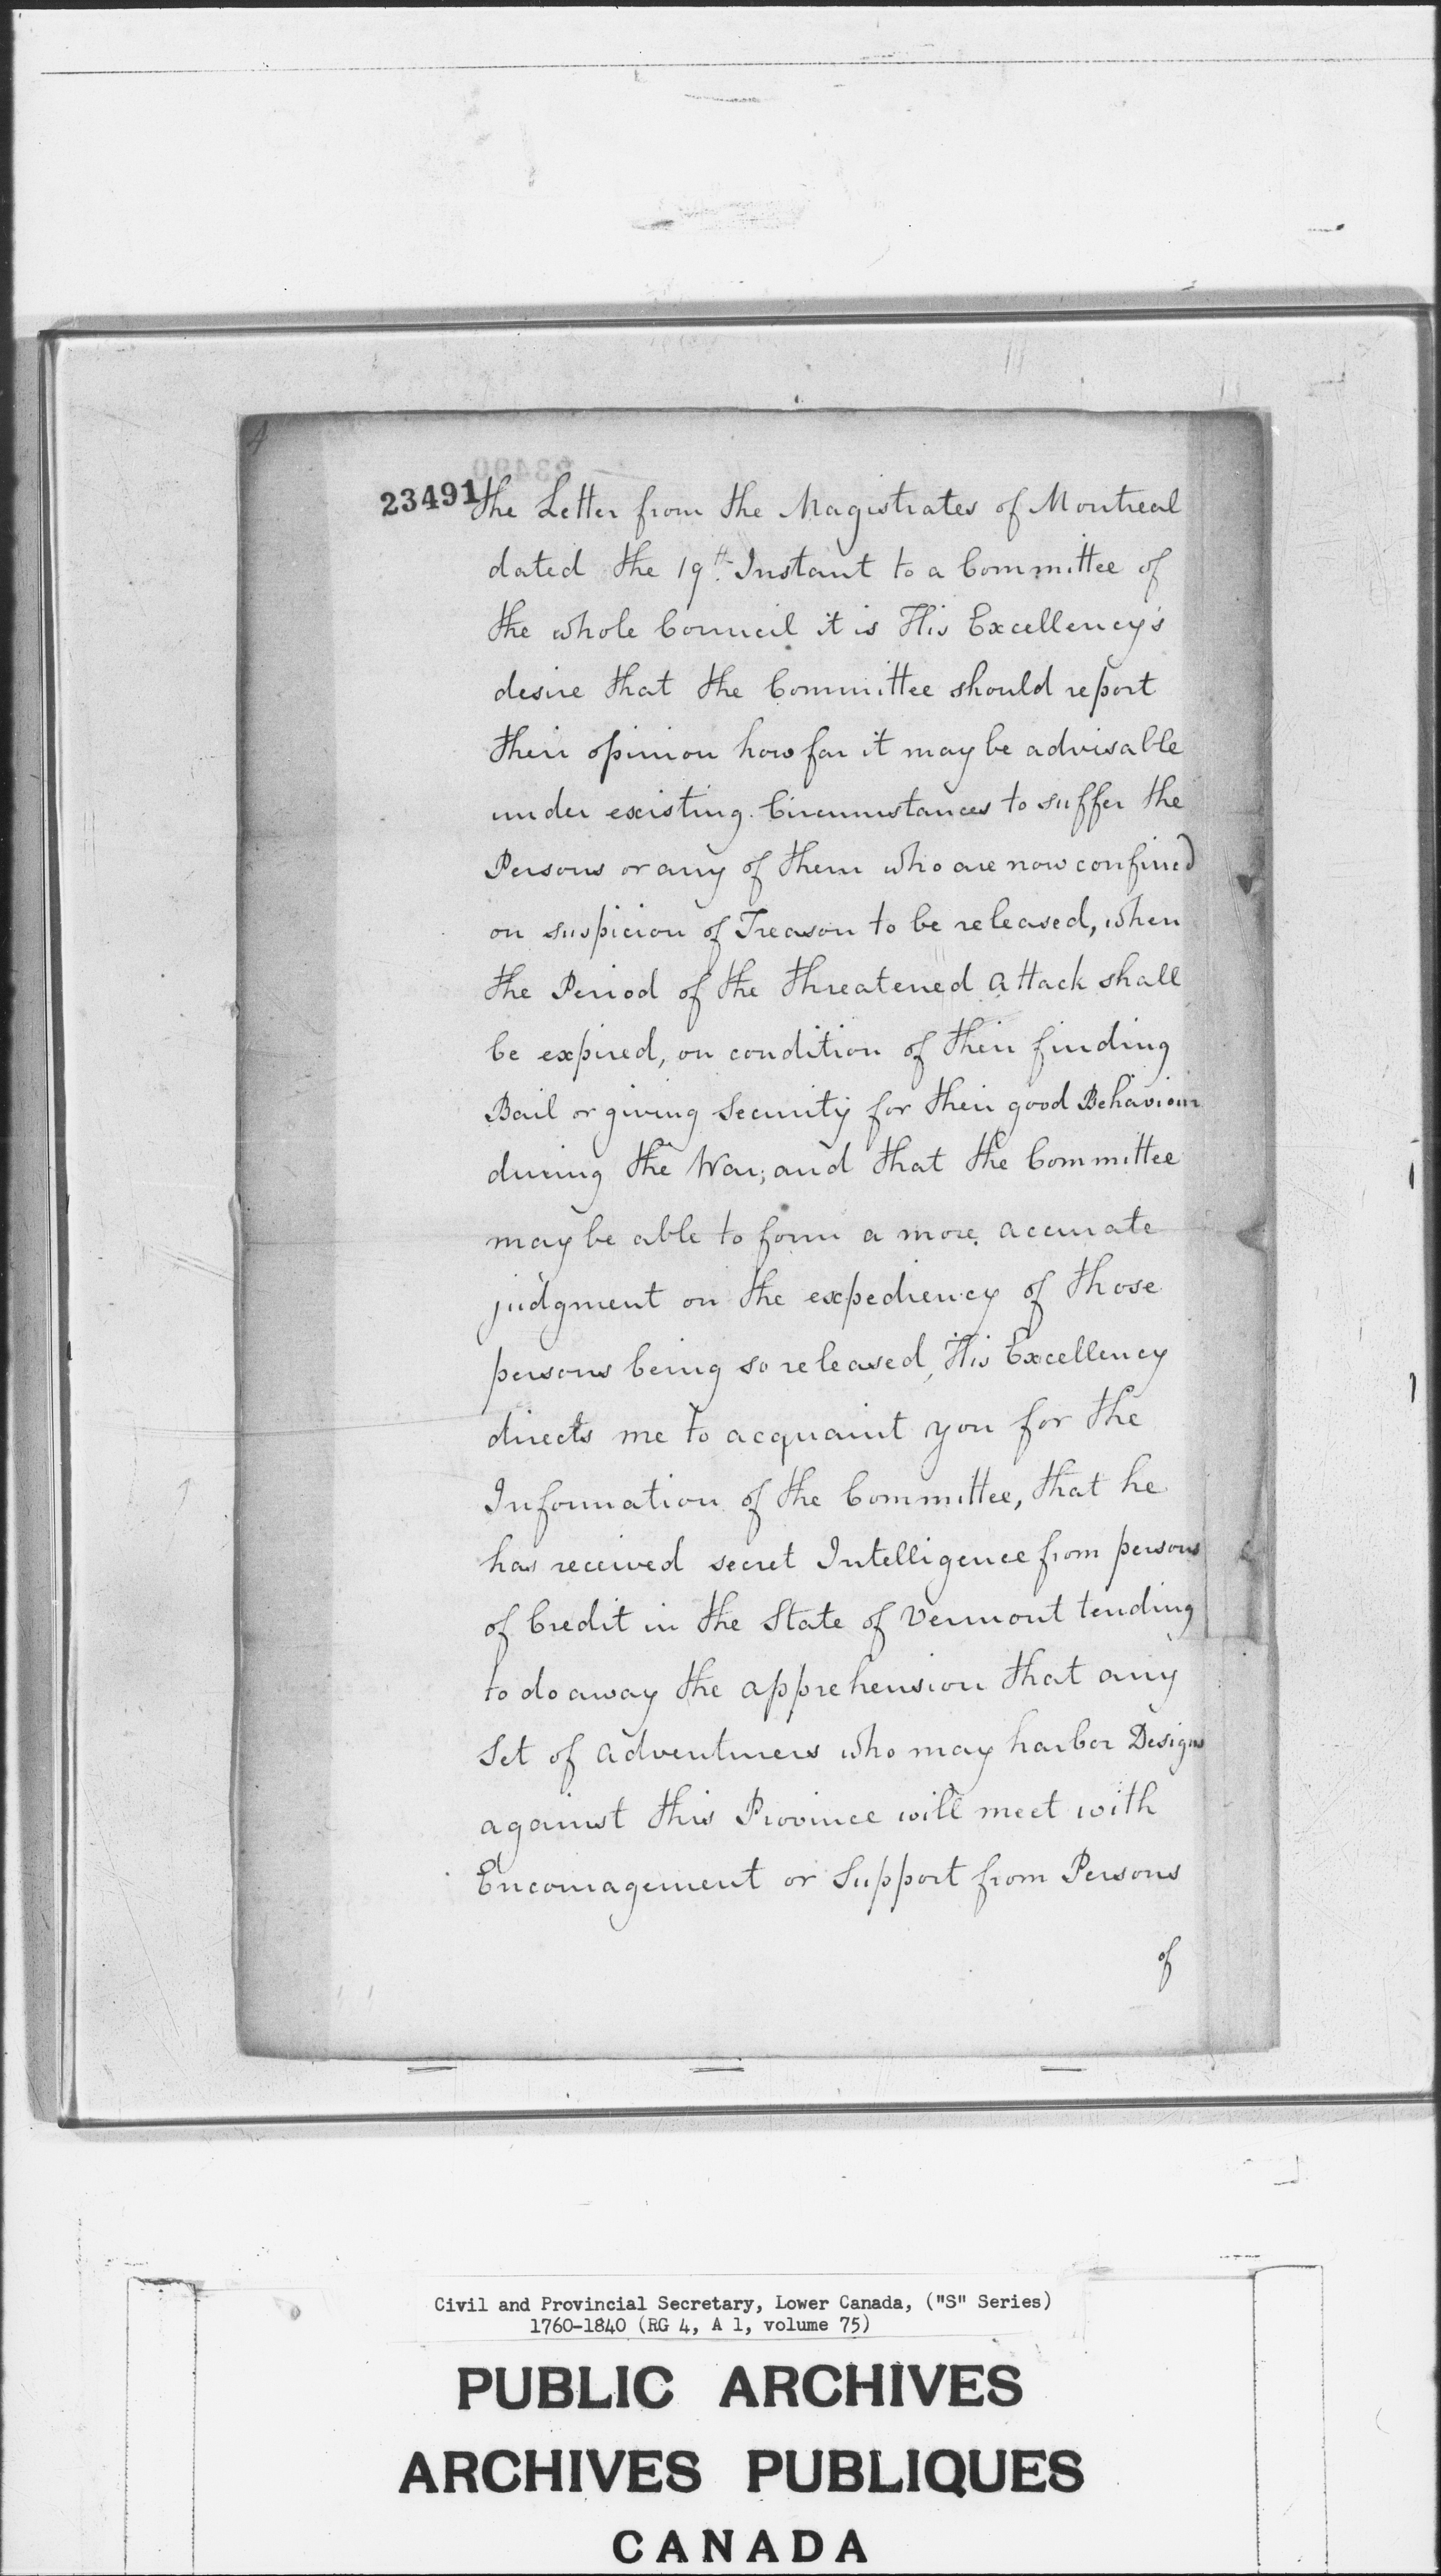 23491
the Letter from the Magistrates of Montreal
dated the 19th Instant to a Committee of
the whole Council it is His Excellency's
desire that the Committee should report
their opinion how far it may be advisable
under existing Circumstances to suffer the
Persons or any of them who are now confined
on suspicion of Treason to be released, when
the Period of the threatened attack shall
be expired, on condition of their finding
Bail or giving Security for their good Behaviour
during the War; and that the Committee
may be able to form a more accurate
judgment on the expediency of those
persons being so released, His Excellency
directs me to acquaint you for the
Information of the Committee, that he
has received secret Intelligence from persons
of Credit in the State of Vermont tending
to do away the apprehension that any
Set of adventurers who may harbor Designs
against this Province will meet with
Encouragement or Support from Persons
of
Civil and Provincial Secretary, Lower Canada, ("S" Series)
1760-1840 (RG 4, A 1, volume 75)
PUBLIC ARCHIVES
ARCHIVES PUBLIQUES
CANADA